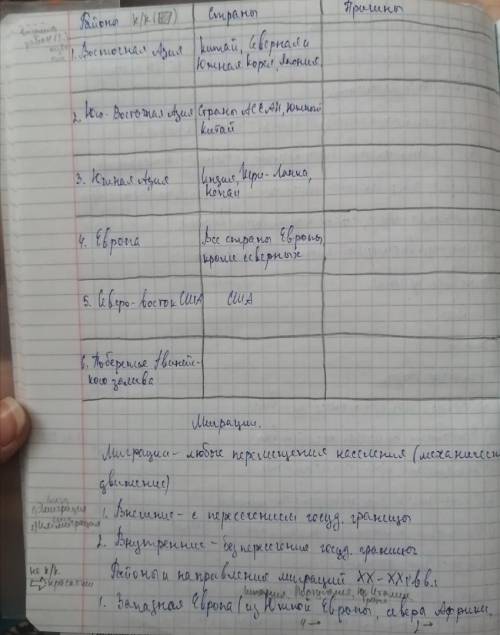 Районы к/к (III) Страны Причины
1. Восточная Азия Китай, Северная и
Южная Корея, Япония
2. Юго-Восточная Азия Страны АСЕАН, Южный
Китай
3. Южная Азия Индия, Шри-Ланка,
4. Европа Все страны Европы,
кроме северных
5. Северо-восток США США
6. Побережье Гвиней-
ского залива
Миграции.
Миграции - любые перемещения населения (механическое
движение)
1. Внешние - с пересечением госуд. границы
2. Внутренние - без пересечения госуд. границы
на к/к
Районы и направления миграций XX-XXI в.в.
1. Западная Европа (из Южной Европы, севера Африки,